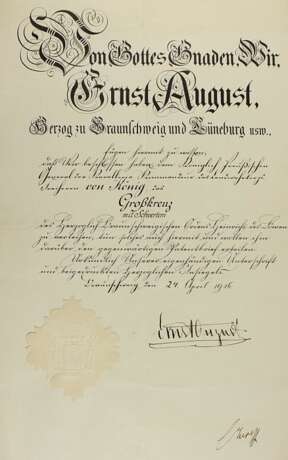 Von Gottes Gnaden, Wir,
Ernst August,
Herzog zu Braunschweig und Lüneburg usw.,
fügen hiermit zu wissen,
daß Wir beschlossen haben, dem Königlich Preußischen
General der Kavallerie, Kommandeur des
Freiherrn von König das
Großkreuz
mit Schwertern
des Herzoglich Braunschweigischen Ordens Heinrichs des Löwen
zu verleihen, tun solches auch hiermit und wollen ihm
darüber den gegenwärtigen Patentbrief erteilen.
Urkundlich Unserer eigenhändigen Unterschrift
und beigedruckten Herzoglichen Insiegels.
Braunschweig, den 24. April 1916
Ernst August